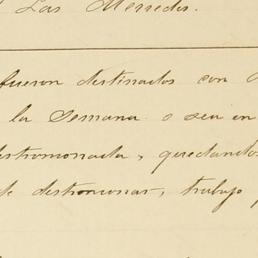 Las Mercedes.
fueron destinados con
la semana o sea en
destromonada, quedando
de destroncar, trabajo